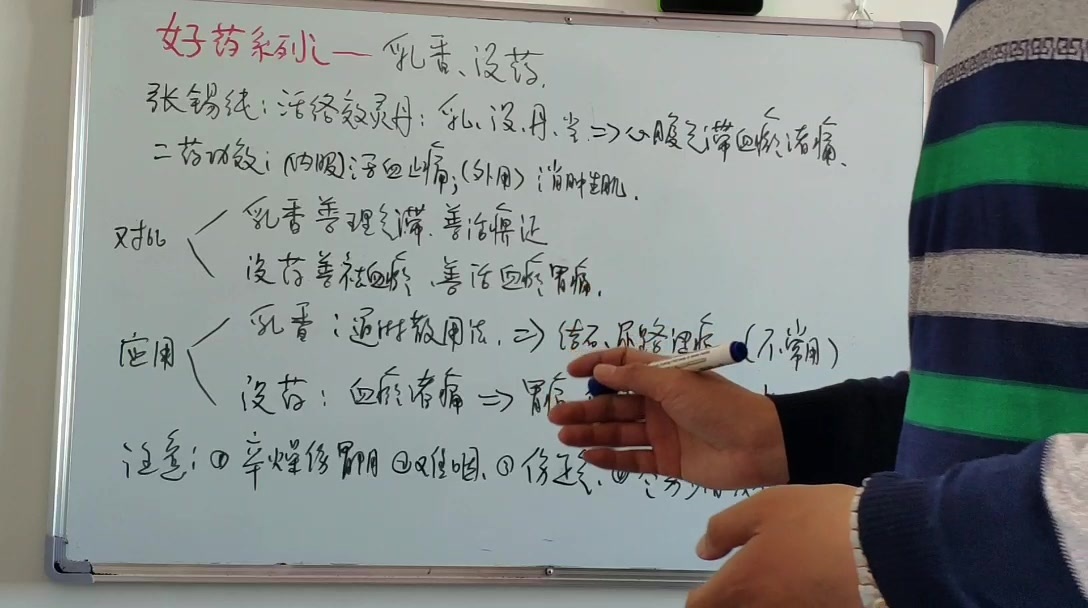 好药系列之一 乳香、没药.
张锡纯:活络效灵丹:乳、没、丹、当 => 心腹气滞血瘀诸痛、
二药功效:(内服)活血止痛;(外用)消肿生肌.
对比
乳香善理气滞、善治痹证
没药善祛血瘀、善治血瘀胃痛.
应用
乳香: 散用法. => 结石、尿路 (不常用)
没药: 血瘀诸痛 => 胃痛
注意:① 辛燥伤胃阴 ②难咽、③ 伤正气、④